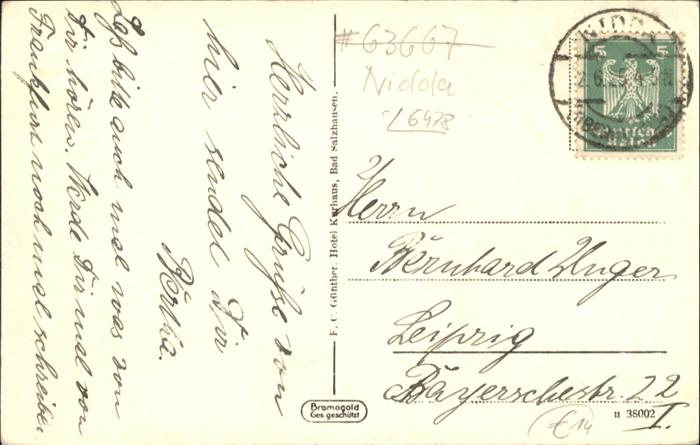 Herzliche Grüße von
hier sendet Dir
Laß bitte auch mal was von
Dir hören. Werde Dir mal von
Frankfurt noch mal schreiben.
F. C. Günther, Hotel Kurhaus, Bad Salzhausen.
Bromogold
Ges geschützt
# 63667
Nidda
16478
NIDDA
5 5
Deutsches
Reich
Herrn
Bernhard Unger
Leipzig
Bayerschestr. 22
I.
u 38002
€ 14